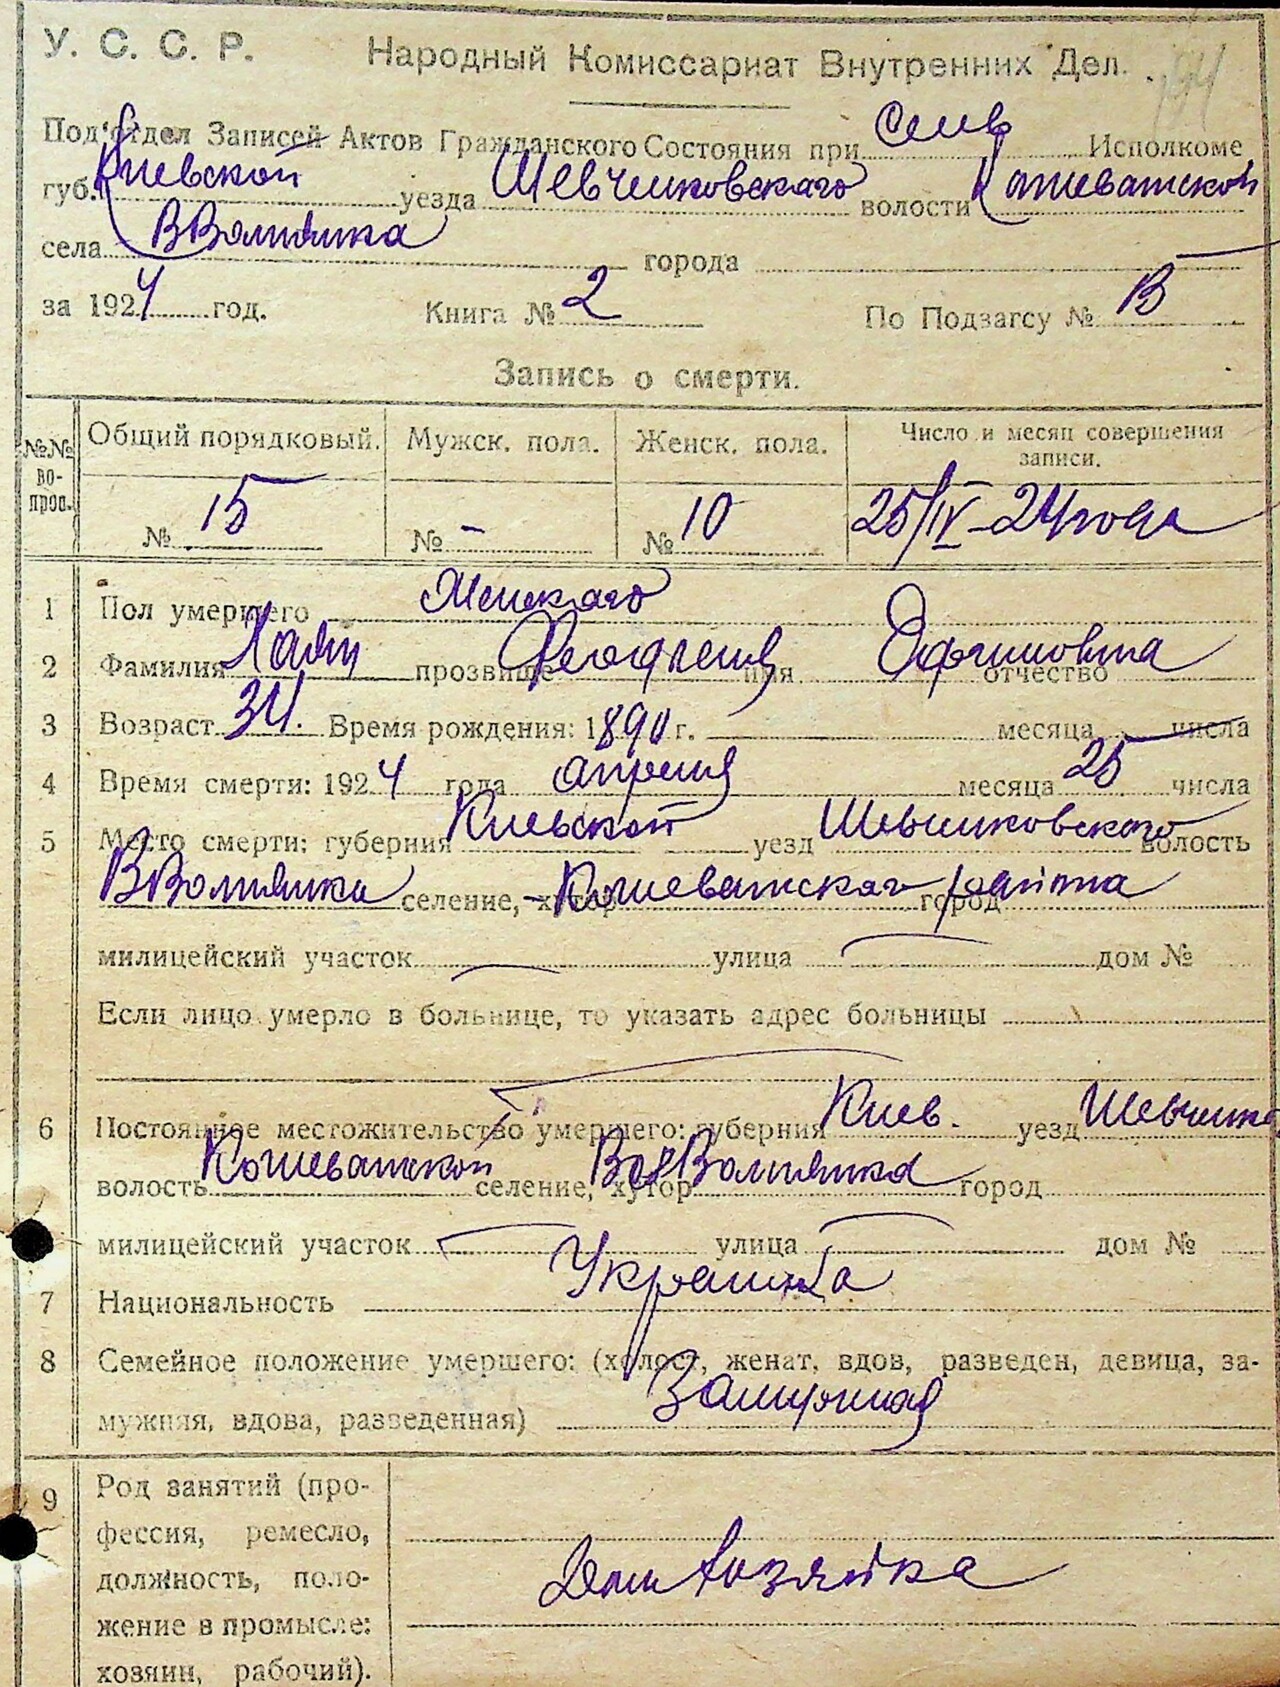 У. С. С. Р. Народный Комиссариат Внутренних Дел. 194
Под‘отдел Записей Актов Гражданского Состояния при Исполкоме
губ. Киевской уезда Шевченковского волости
села города
за 1924 год. Книга № 2 По Подзагсу №
Запись о смерти.
№№ вопрос. Общий порядковый. Мужск. пола. Женск. пола. Число и месяц совершения записи.
№ 15 № - № 10 25/IV-24 года
1 Пол умершего Женскаго
2 Фамилия прозвище имя отчество
3 Возраст 34. Время рождения: 1890 г. месяца числа
4 Время смерти: 1924 года апреля месяца 25 числа
5 Место смерти: губерния Киевской уезд Шевченковского волость
селение, хутор город
милицейский участок улица дом №
Если лицо умерло в больнице, то указать адрес больницы
6 Постоянное местожительство умершего: губерния Киев. уезд
волость селение, хутор город
милицейский участок улица дом №
7 Национальность Украинка
8 Семейное положение умершего: (холост, женат, вдов, разведен, девица, за-
мужняя, вдова, разведенная) Замужняя
9 Род занятий (про-
фессия, ремесло,
должность, поло- Дом хозяйка
жение в промысле:
хозяин, рабочий).